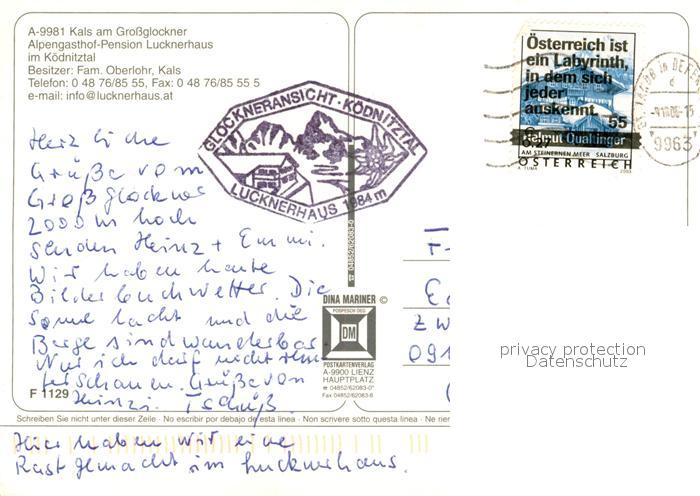 A-9981 Kals am Großglockner
Alpengasthof-Pension Lucknerhaus
im Ködnitztal
Besitzer: Fam. Oberlohr, Kals
Telefon: 0 48 76/85 55, Fax: 0 48 76/85 55 5
e-mail: info@lucknerhaus.at
GLOCKNERANSICHT·KÖDNITZTAL
LUCKNERHAUS 1984 m
Herzliche
Grüße vom
Großglockner
2000 m hoch
senden Heinz + Emmi.
Wir haben heute
Bilderbuchwetter. Die
Sonne lacht und die
Berge sind wunderbar.
Nur ich darf nicht
Grüße von
Heinzi. Tschüß.
F 1129
Österreich ist
ein Labyrinth,
in dem sich
jeder
auskennt
55
Helmut Qualtinger
AM STEINERNEN MEER SALZBURG
ÖSTERREICH
A. TUMA 2003
9963
04852/62083-0
DINA MARINER ©
POSPESCH DEG.
DM
POSTKARTENVERLAG
A-9900 LIENZ
HAUPTPLATZ
04852/62083-0*
Fax 04852/62083-6
F-
zw
091
privacy protection
Datenschutz
Schreiben Sie nicht unter dieser Zeile · No escribir por debajo de esta linea · Non scrivere sotto questa linea · Ne rien
Hier haben wir eine
Rast gemacht im Lucknerhaus.